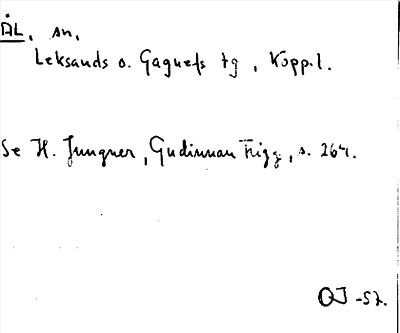 ÅL, sn.
Leksands o. Gagnefs tg, Kopp.l.
Se H. Jungner, Gudinnan Frigg, s. 264.
OJ -57.